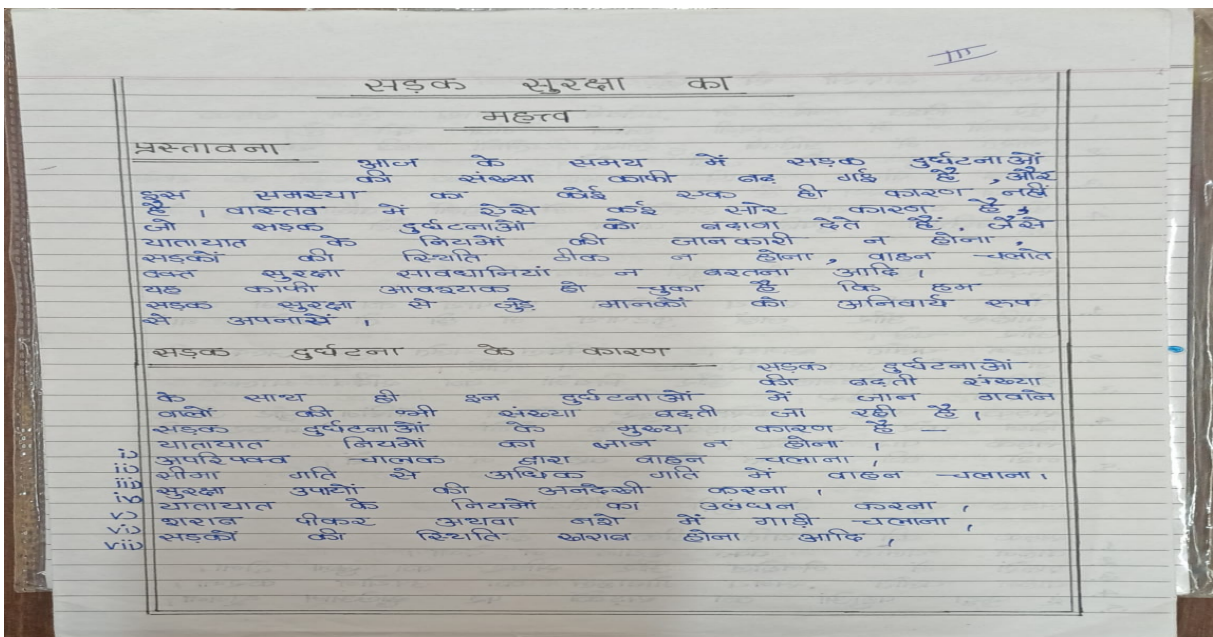 III
सड़क सुरक्षा का
महत्व
प्रस्तावना
आज के समय में सड़क दुर्घटनाओं
की संख्या काफी बढ़ गई है , और
इस समस्या का कोई एक ही कारण नहीं
है । वास्तव में ऐसे कई सारे कारण है ,
जो सड़क दुर्घटनाओं को बढ़ावा देते हैं. जैसे
यातायात के नियमों की जानकारी न होना ,
सड़कों की स्थिति ठीक न होना , वाहन चलाते
वक्त सुरक्षा सावधानियां न बरतना आदि ।
यह काफी आवश्यक हो चुका है कि हम
सड़क सुरक्षा से जुड़े मानकों को अनिवार्य रूप
से अपनायें ।
सड़क दुर्घटना के कारण
सड़क दुर्घटनाओं
की बढ़ती संख्या
के साथ ही इन दुर्घटनाओं में जान गवाने
वालों की भी संख्या बढ़ती जा रही है ।
सड़क दुर्घटनाओं के मुख्य कारण है —
i) यातायात नियमों का ज्ञान न होना ।
ii) अपरिपक्व चालक द्वारा वाहन चलाना ,
iii) सीमा गति से अधिक गति में वाहन चलाना ।
iv) सुरक्षा उपायों की अनदेखी करना ।
v) यातायात के नियमों का उलंघन करना ,
vi) शराब पीकर अथवा नशे में गाड़ी चलाना ,
vii) सड़कों की स्थिति खराब होना आदि ,